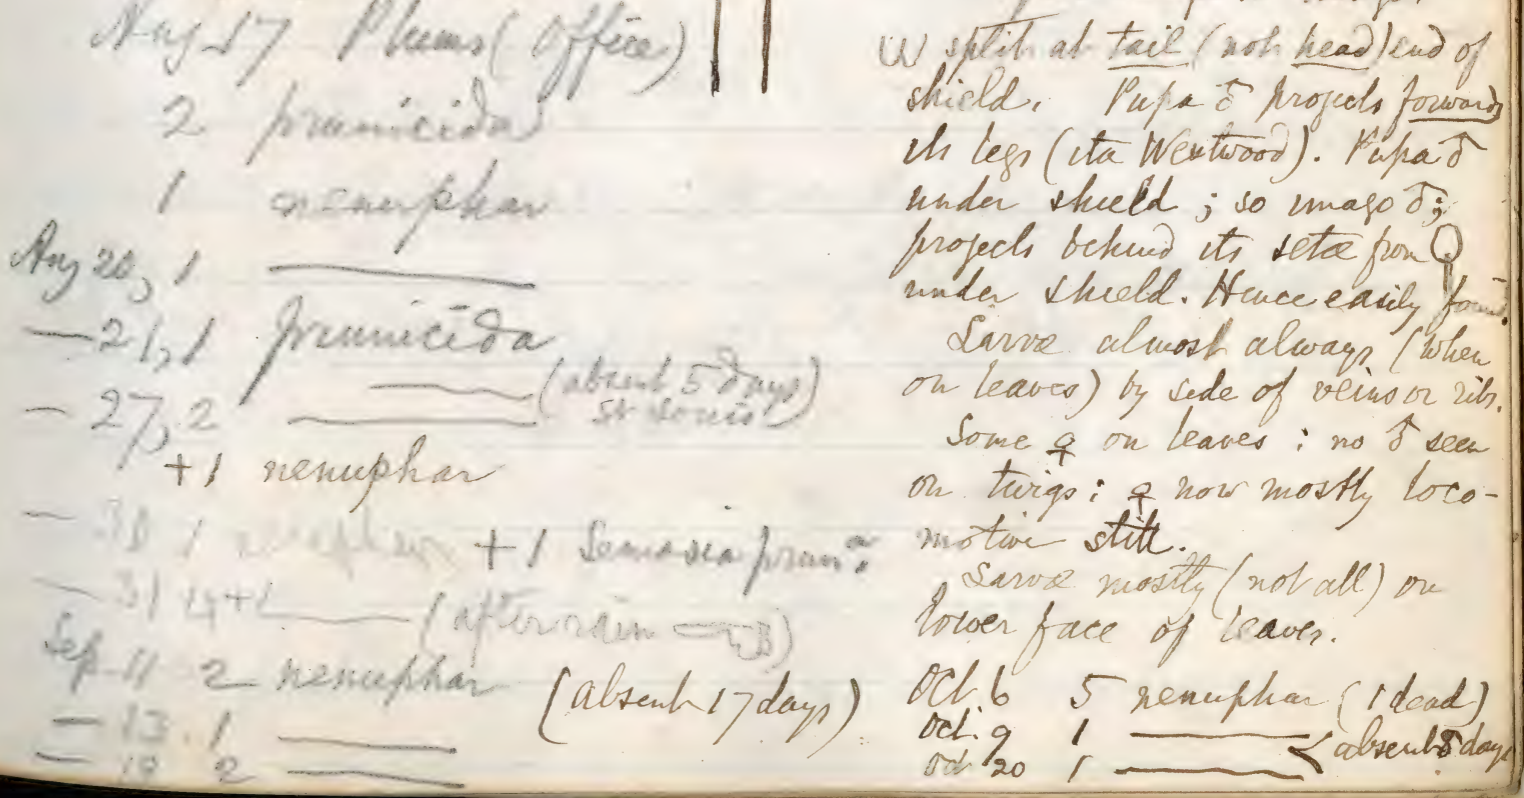 Aug 17 Plums (office)
2 prunicida
1 nenuphar
Aug 20, 1 ———
— 21, 1 prunicida
——— (absent 5 days
— 27, 2 ——— St Louis)
+1 nenuphar
— 30 1 nenuphar +1 Semasia prun.
— 31 + 1 ——— (after rain ☜)
Sep 11 2 nenuphar (absent 17 days)
— 13 . 1 ———
— 19 2 ———
split at tail (not head) end of
shield. Pupa ♂ projects forwards
its legs (ita Westwood). Pupa ♂
under shield; so imago ♂;
projects behind its setæ from
under shield. Hence easily found.
Larvæ almost always (when
on leaves) by side of veins or ribs.
Some ♀ on leaves : no ♂ seen
on twigs : ♀ now mostly loco-
motive still.
Larvæ mostly (not all) on
lower face of leaves.
Oct. 6 5 nenuphar (1 dead)
Oct. 9 1 ———
(absent 8 days
Oct 20 1 ———